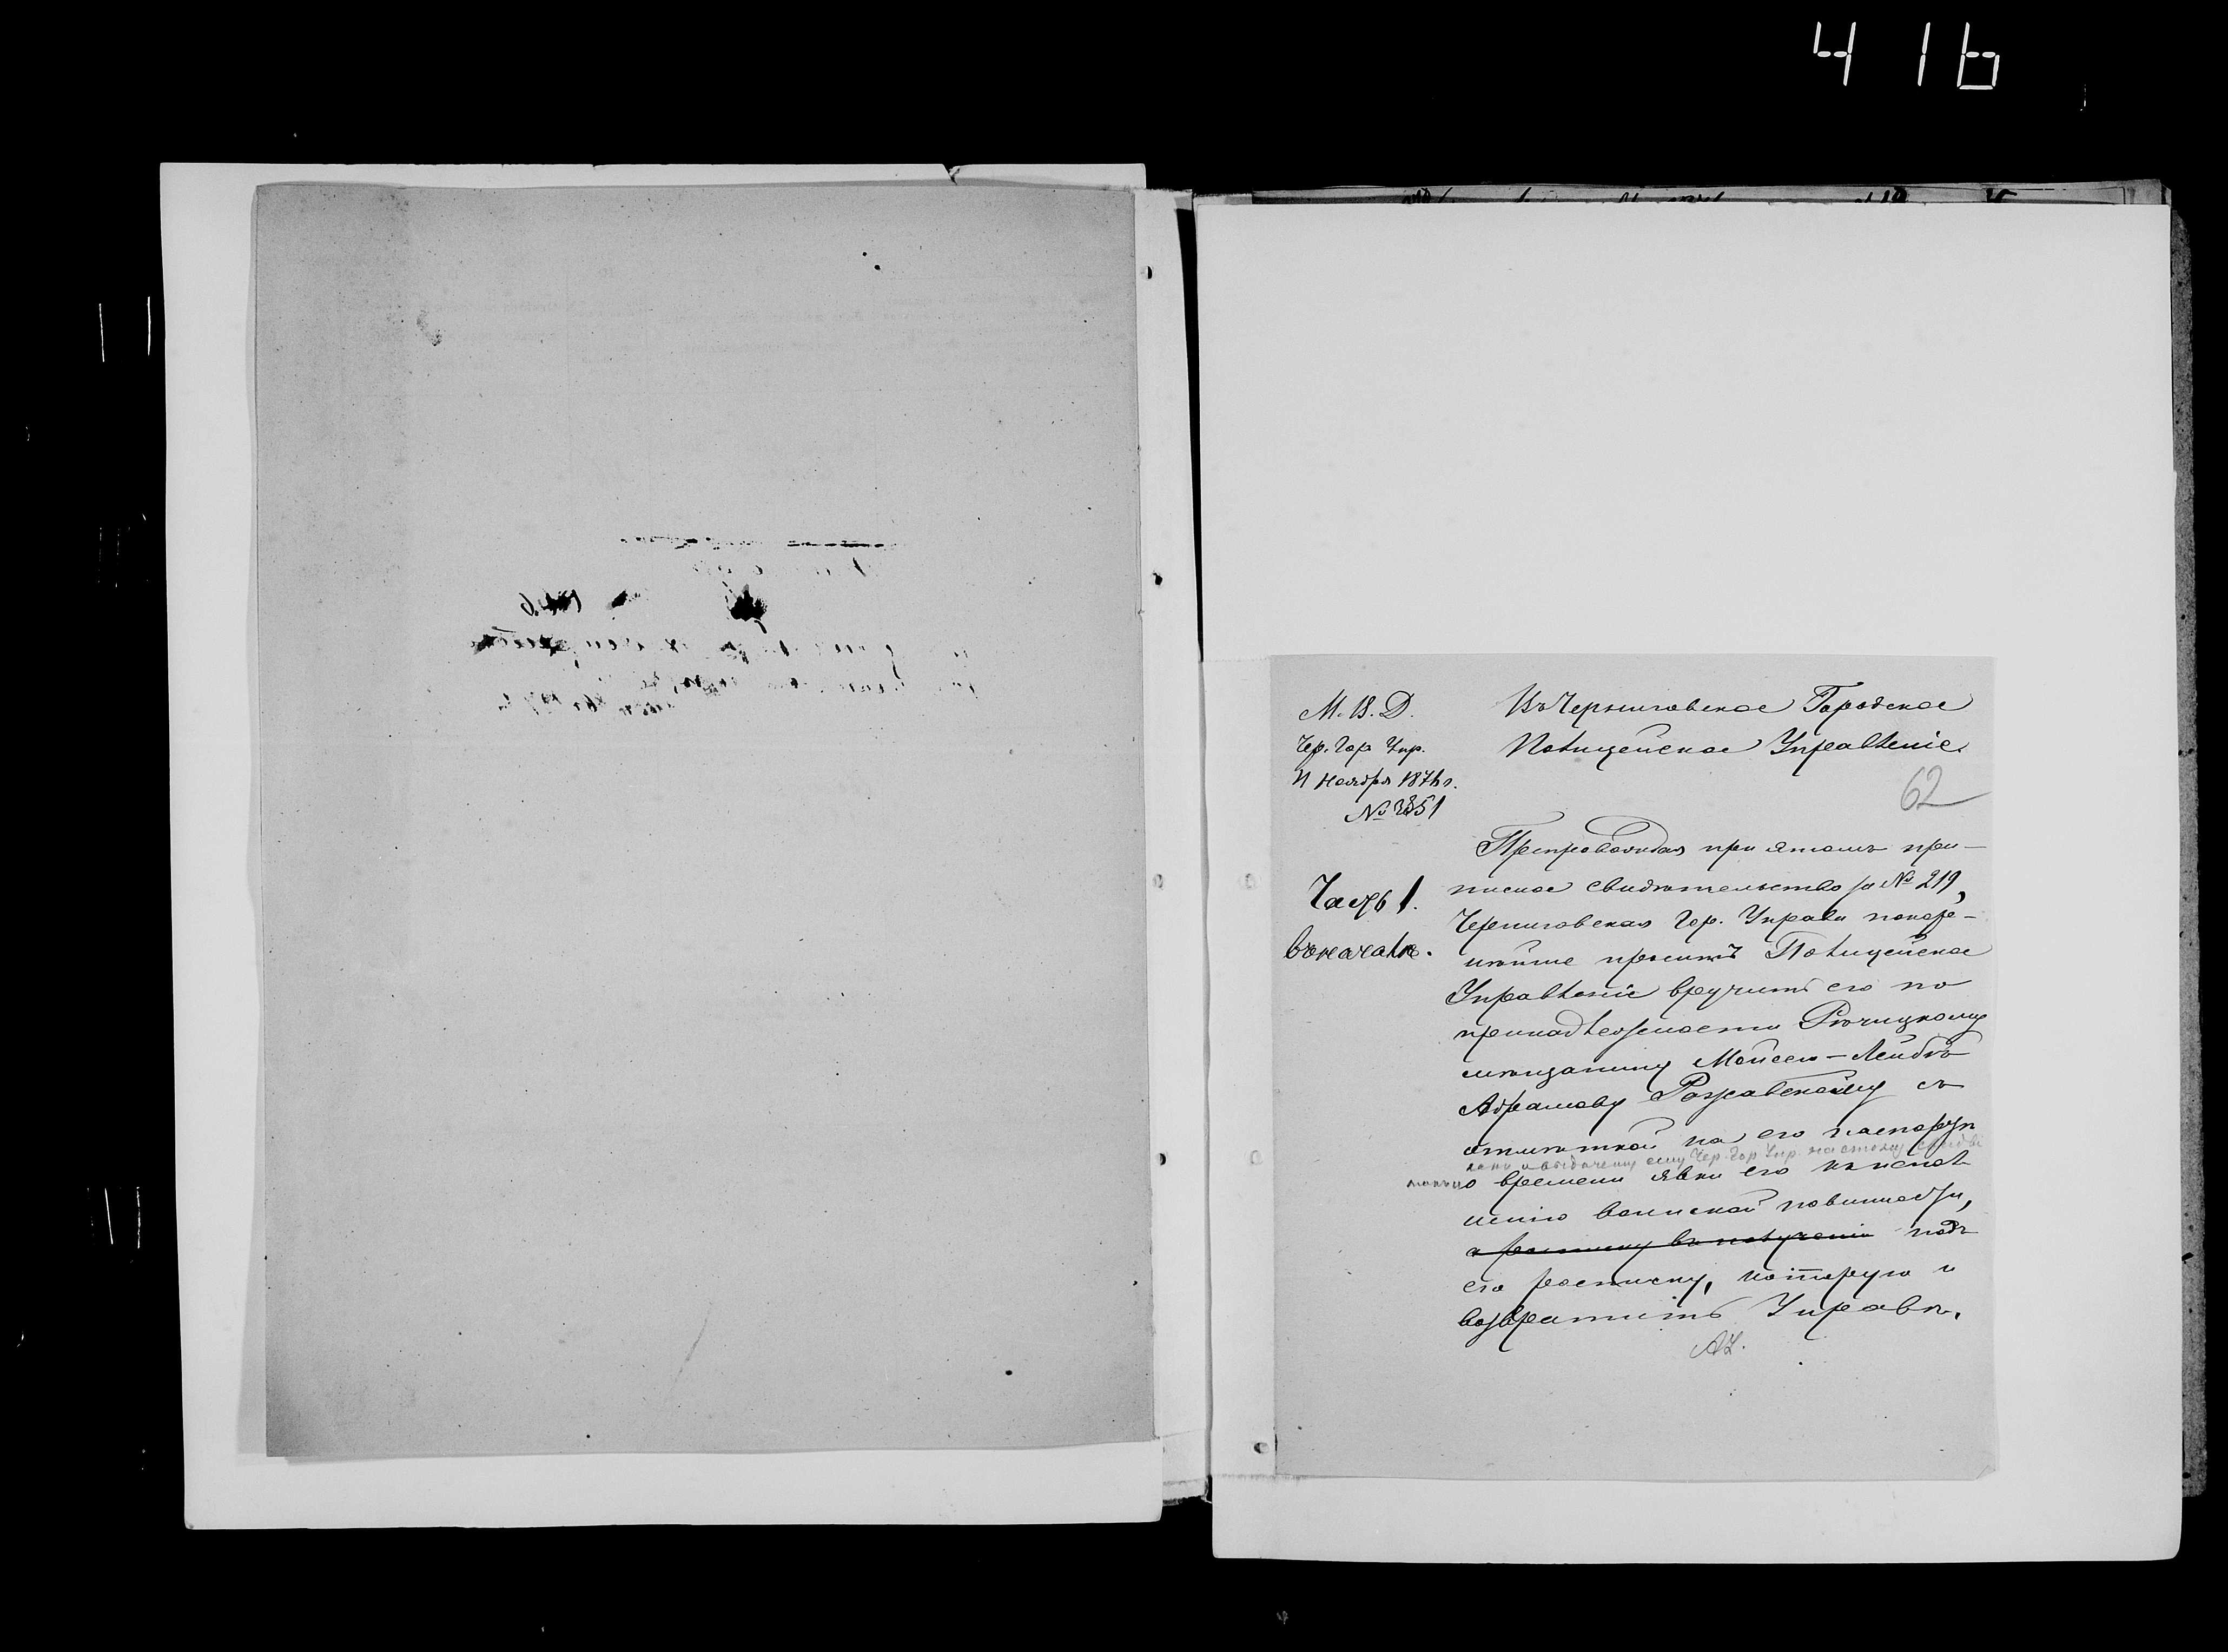 416
М. В. Д.
Чер. Гор. Упр.
11 Ноября 1876 г.
№ 3351
Часть 1.
Въ началѣ.
Въ Черниговское Городское
Полицейское Управленіе.
62
Препровождая при этомъ при-
писное свидѣтельство за № 219,
Черниговская Гор. Управа покор-
нѣйше проситъ Полицейское
Управленіе вручить его по
принадлежности Рѣчицкому
мѣщанину Мойсею-Лейбѣ
Абрамову Рожавскому съ
отмѣткой на его паспортѣ
выданному ему Чер. Гор. Упр.
о времени явки его къ испол-
ненію воинской повинности,
а росписку въ полученіи подъ
его росписку, которую и
возвратить Управѣ.